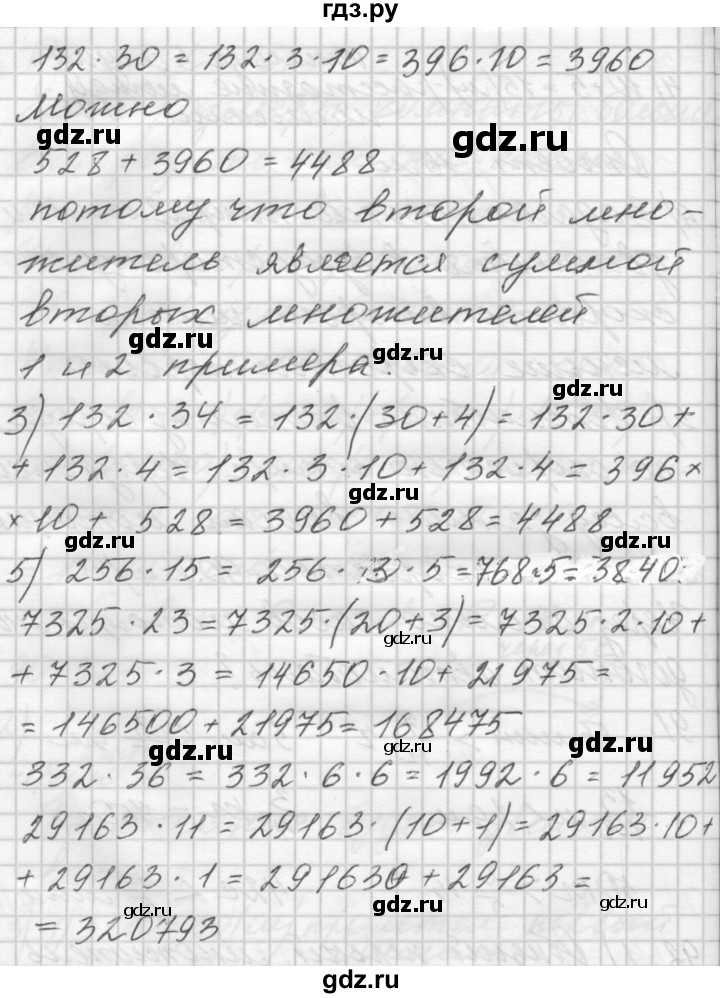 гдз.ру
132 · 30 = 132 · 3 · 10 = 396 · 10 = 3960
Можно
gdz.ru
gdz.ru
528 + 3960 = 4488
потому что второй мно-
житель является суммой
вторых множителей
gdz.ru
gdz.ru
1 и 2 примера.
gdz.ru
3) 132 · 34 = 132 · (30+4) = 132 · 30 +
+ 132 · 4 = 132 · 3 · 10 + 132 · 4 = 396 ×
gdz.ru
× 10 + 528 = 3960 + 528 = 4488
gdz.ru
gdz.ru
5) 256 · 15 = 256 · 3 · 5 = 768 · 5 = 3840.
gdz.ru
7325 · 23 = 7325 · (20+3) = 7325 · 2 · 10 +
gdz.ru
+ 7325 · 3 = 14650 · 10 + 21975 =
= 146500 + 21975 = 168475
gdz.ru
gdz.ru
gdz.ru
332 · 36 = 332 · 6 · 6 = 1992 · 6 = 11952
29163 · 11 = 29163 · (10+1) = 29163 · 10 +
+ 29163 · 1 = 291630 + 29163 =
gdz.ru
gdz.ru
gdz.ru
= 320793
gdz.ru